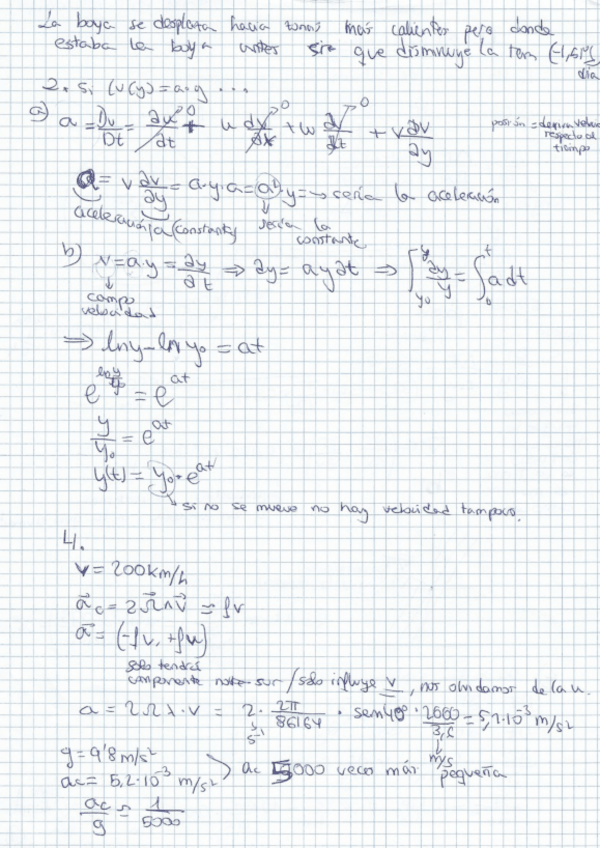 La boya se desplaza hacia zonas más calientes pero donde
estaba la boya antes sigue que disminuye la tem (-1,51ºC/día
2. Si (v(y) = a·y ...
a) a = Dv/Dt = ∂v/∂t + u ∂v/∂x + w ∂v/∂t + v ∂v/∂y
posición = derivar velocidad respecto al tiempo
a = v ∂v/∂y = a·y·a = a²·y = → sería la aceleración
aceleración a (constante) sería la
constante
b) v = a·y = ∂y/∂t ⇒ ∂y = a y ∂t ⇒ ∫_{y₀}^{y} ∂y/y = ∫_0^t a dt
campo
velocidad
⇒ ln y - ln y₀ = at
e^{ln y/y₀} = e^{at}
y/y₀ = e^{at}
y(t) = y₀·e^{at}
si no se mueve no hay velocidad tampoco.
4.
v = 200 km/h
a⃗c = 2Ω⃗∧v⃗ = fv
a⃗ = (-fv, +fu)
solo tendrá
componente norte-sur / solo influye v, nos olvidamos de la u.
a = 2Ωλ·v = 2·2π/86164 · sen 40º · 2000/3,6 = 5,2·10⁻³ m/s²
s⁻¹ m/s
g = 9'8 m/s²
ac = 5,2·10⁻³ m/s² > ac 5000 veces más pequeña
ac/g = 1/5000